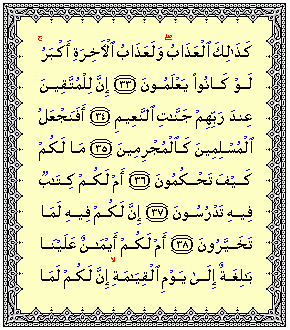 كَذَٰلِكَ ٱلْعَذَابُ ۖ وَلَعَذَابُ ٱلْآخِرَةِ أَكْبَرُ ۚ
لَوْ كَانُوا۟ يَعْلَمُونَ ﴿٣٣﴾ إِنَّ لِلْمُتَّقِينَ
عِندَ رَبِّهِمْ جَنَّٰتِ ٱلنَّعِيمِ ﴿٣٤﴾ أَفَنَجْعَلُ
ٱلْمُسْلِمِينَ كَٱلْمُجْرِمِينَ ﴿٣٥﴾ مَا لَكُمْ
كَيْفَ تَحْكُمُونَ ﴿٣٦﴾ أَمْ لَكُمْ كِتَٰبٌ
فِيهِ تَدْرُسُونَ ﴿٣٧﴾ إِنَّ لَكُمْ فِيهِ لَمَا
تَخَيَّرُونَ ﴿٣٨﴾ أَمْ لَكُمْ أَيْمَٰنٌ عَلَيْنَا
بَٰلِغَةٌ إِلَىٰ يَوْمِ ٱلْقِيَٰمَةِ ۙ إِنَّ لَكُمْ لَمَا